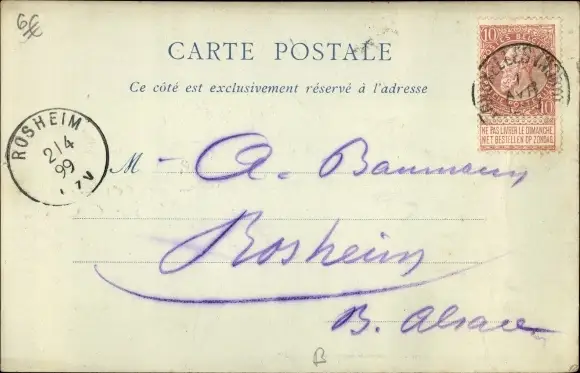 6€
CARTE POSTALE
Ce côté est exclusivement réservé à l'adresse
10 10
NE PAS LIVRER LE DIMANCHE
NIET BESTELLEN OP ZONDAG
ROSHEIM
2/4
99
M - A. Baumann
Rosheim
B. Alsace
B